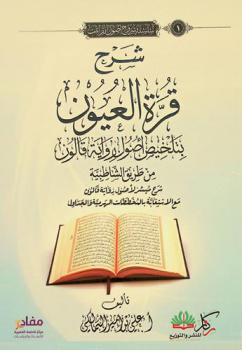 ١
شرح
قرة العيون
بتلخيص أصول رواية قالون
من طريق الشاطبية
شرح ميسر لأصول رواية قالون
مع الاستعانة بالمخططات الهرمية والجداول
تأليف
مفادر
ركاز
للنشر والتوزيع